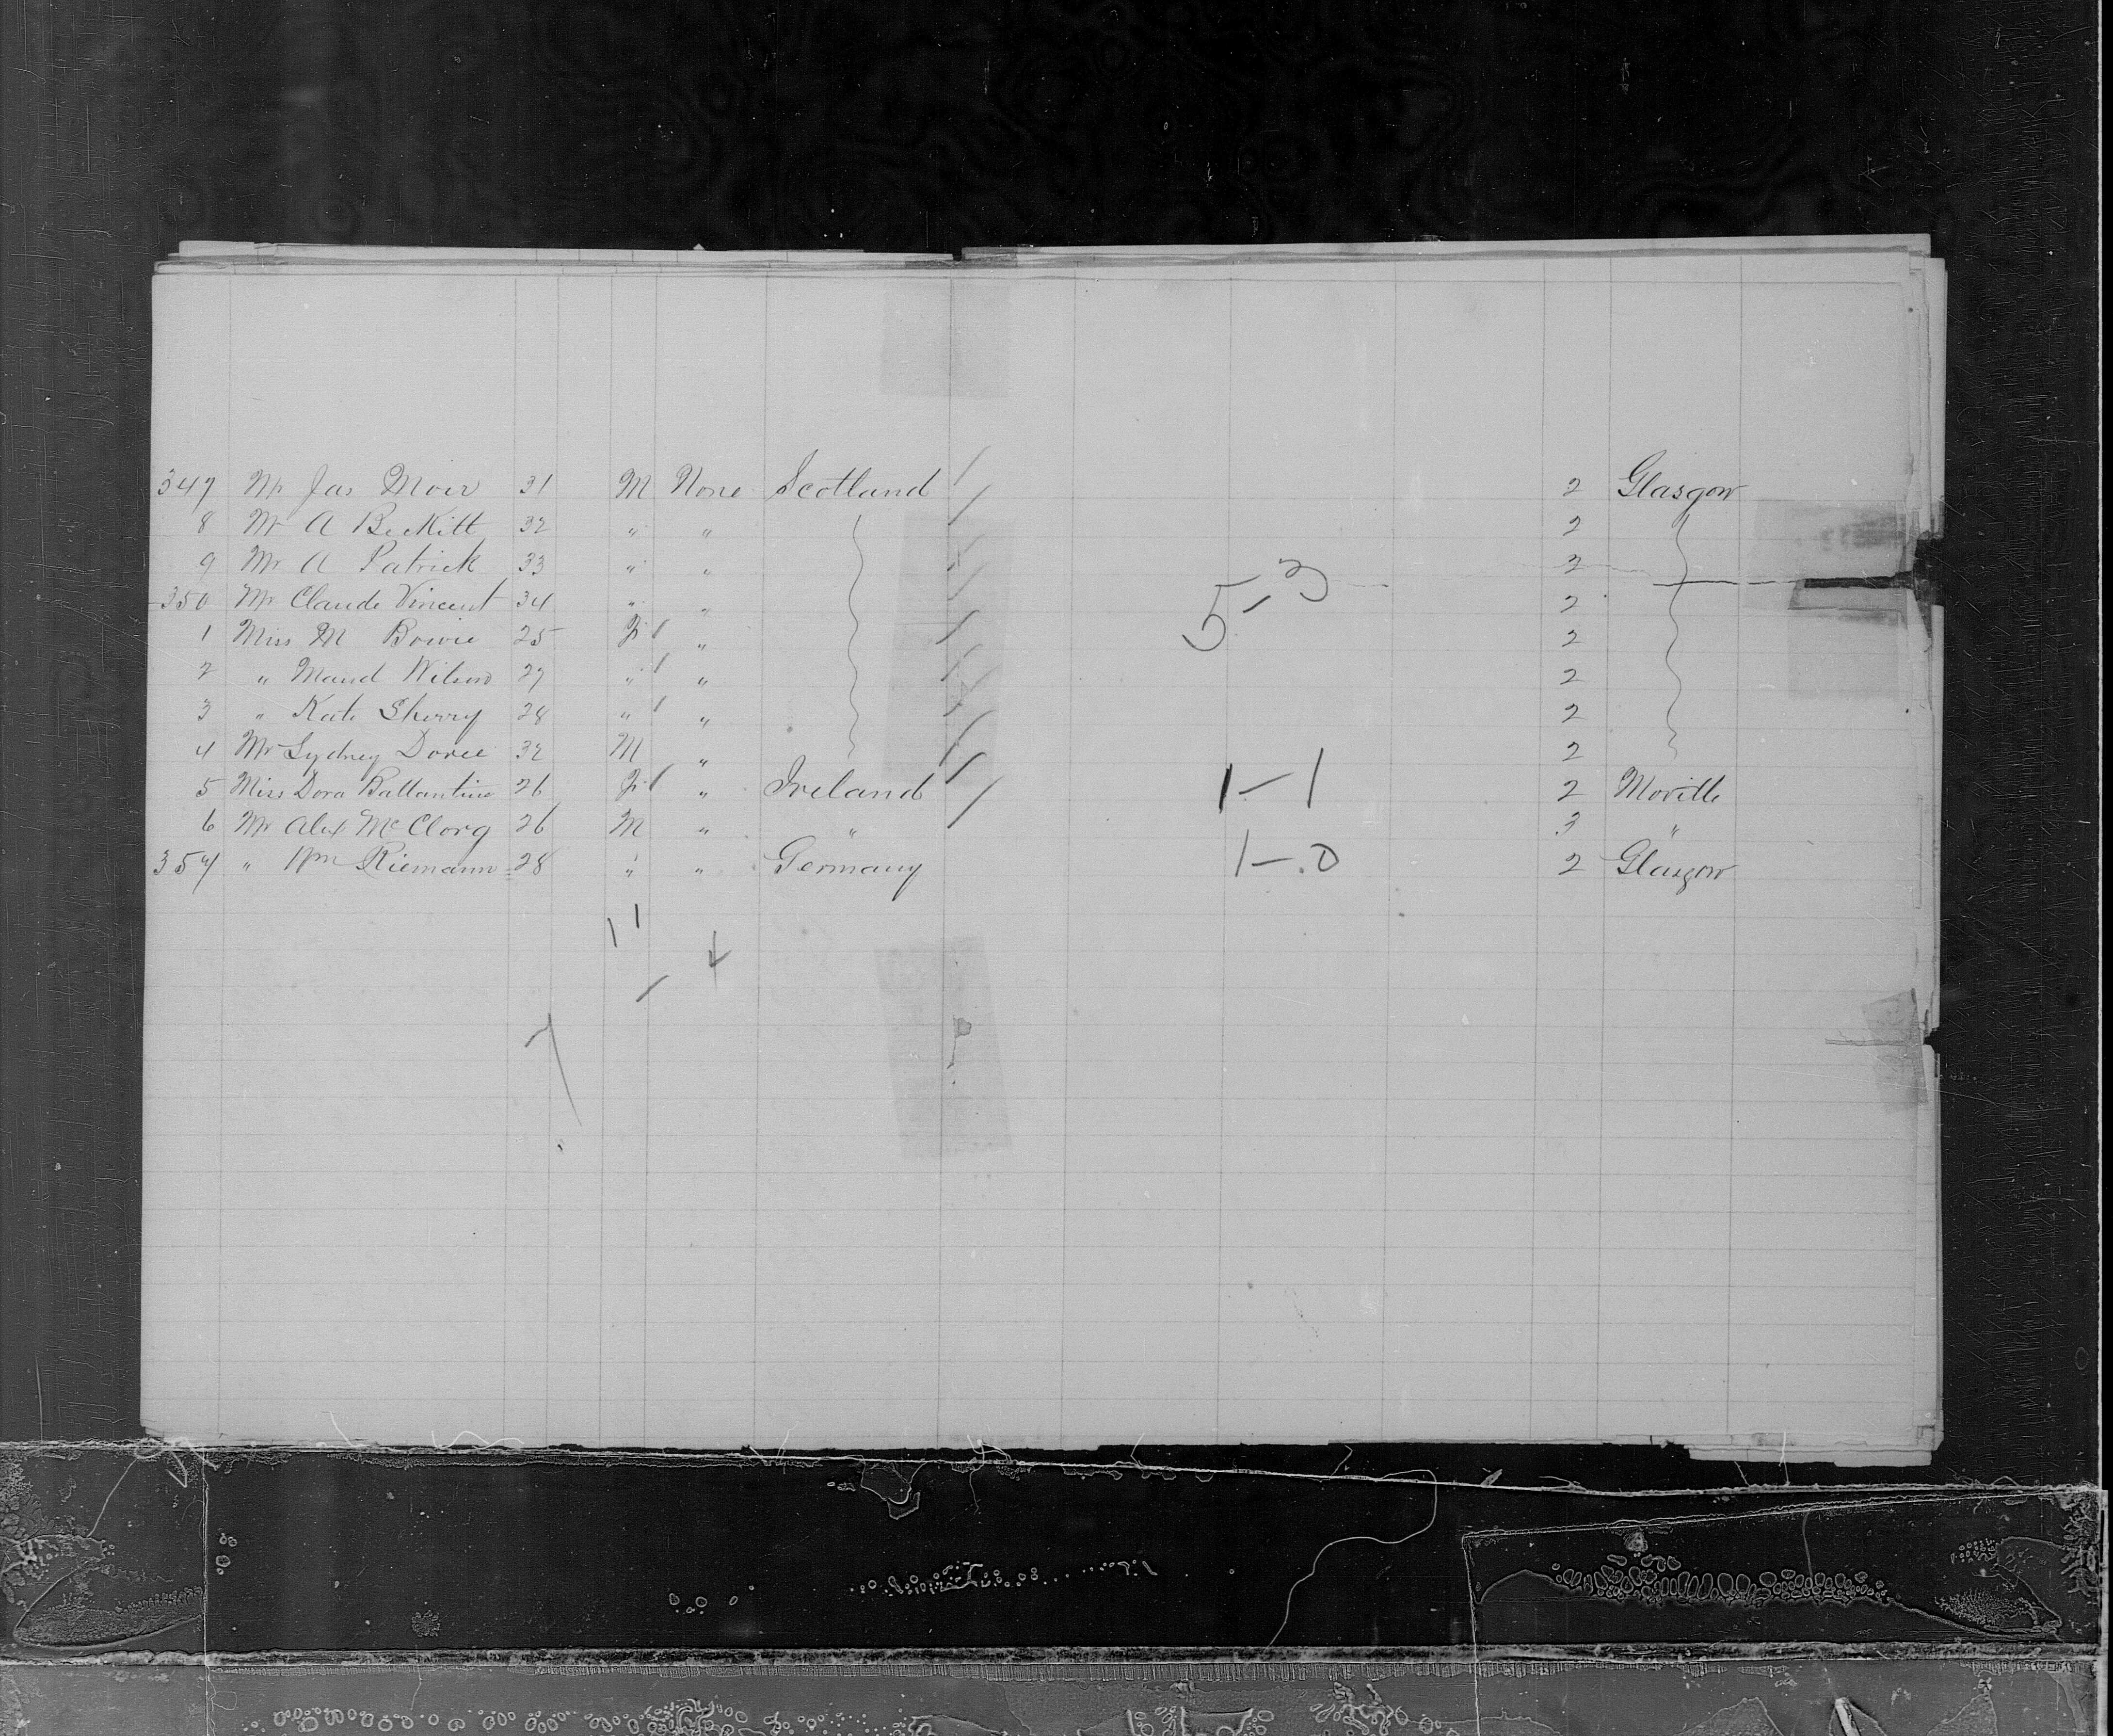 347 Mr Jas Moir 31 M None Scotland 2 Glasgow
8 Mr A Beckitt 32 " " 2
9 Mr A Patrick 33 " " 2
350 Mr Claude Vincent 34 " " 2
1 Miss M Bowie 25 F " 2
2 " Maud Wilson 27 " " 2
3 " Kate Sherry 28 " " 2
4 Mr Sydney Doree 32 M " 2
5 Miss Dora Ballantine 26 F " Ireland 2 Moville
6 Mr Alex McClorg 26 M " " 3 "
357 " Wm Riemann 28 " " Germany 2 Glasgow
5-3
1-1
1-0
11
-4
7